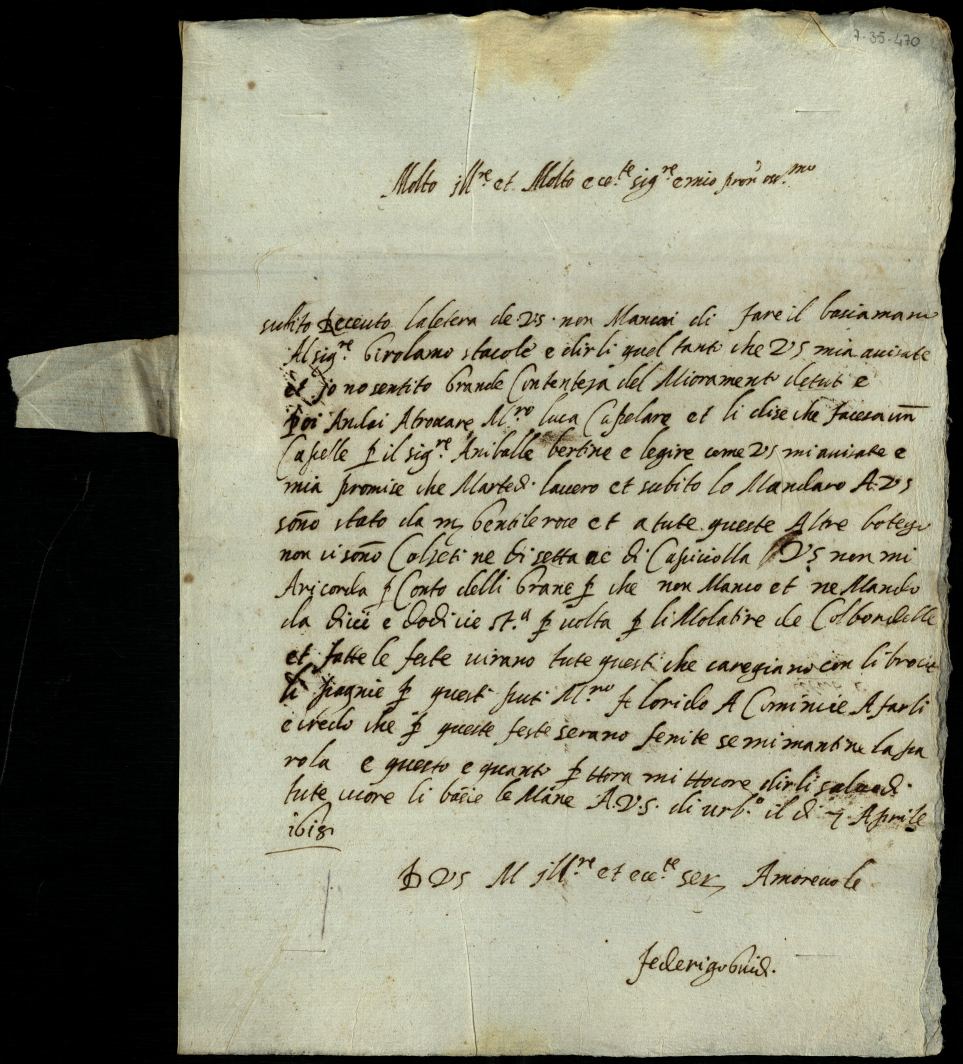 7-35-470
Molto jll.re et Molto ecc.te sig.re e mio pron oss.mo
subito receuto la letera de V S non Mancai di fare il basciamano
Al sig.re Girolamo stacole e dirli quel tanto che V S mia auisate
et jo no sentito Grande Contenteza del Mioramento de tut e
poi Andai Atrouare M.ro luca Capelare et li dise che facesa un
Capelle p il sig.re Aniballe bertine e legire come V S mi auisate e
mia promise che Martedi lauero et subito lo Mandaro A V S
sono stato da m Gentileroce et a tute queste Altre botege
non ui sono Calzeti ne di setta ne di Capiciolla V S non mi
Aricorda p Conto delli Grane p che non Manco et ne Mando
da dieci e dodicie st.a p uolta p li Molatire de Colbordelle
et fatte le feste uirano tute questi che caregiano con li brocie
li pagnie p questi puti M.ro florido A Comincie A farli
e credo che p queste feste serano fenite se mi mantine la pa
rola e questo e quanto p ttora mi ttocore dirli salued.
tute uore li bacie le Mane A.V.S. di urb.o il di 7 Aprile
1618
D V S M jll.re et ecc.te ser Amoreuole
federigo Guid.